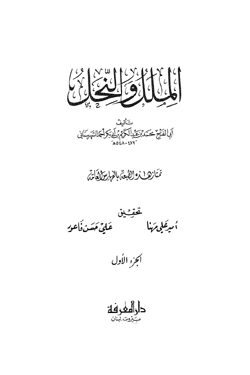 الملل والنحل
تأليف
أبي الفتح محمد بن عبد الكريم بن أبي بكر أحمد الشهرستاني
٤٧٩ - ٥٤٨ هـ
تمتاز هذه الطبعة بالفهارس
تحقيق
أمير علي مهنا علي حسن فاعود
الجزء الأول
دار المعرفة
بيروت - لبنان